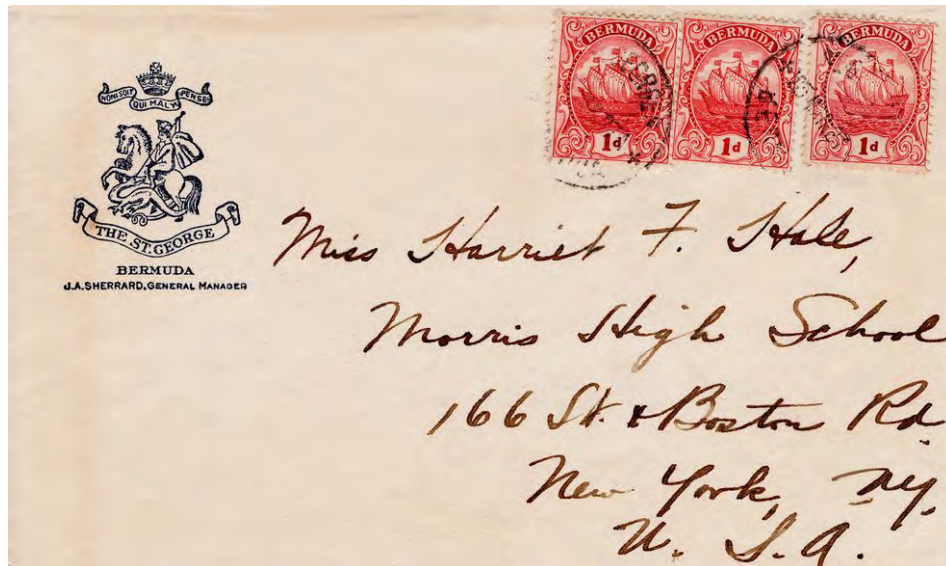 HONI SOIT QUI MAL Y PENSE
THE ST. GEORGE
BERMUDA
J.A. SHERRARD, GENERAL MANAGER
BERMUDA
1d
BERMUDA
1d
BERMUDA
1d
Miss Harriet F. Hale,
Morris High School
166 St. & Boston Rd
New York, N.Y.
U. S. A.